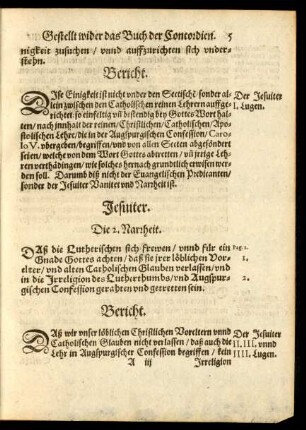 Gestellt wider das Buch der Concordien. 5
nigkeit zusuchen / vnnd auffzurichten sich vnder-
stehn.
Bericht.
DIse Einigkeit ist nicht vnder den Secten: sonder al-
lein zwischen den Catholischen reinen Lehrern auffge-
richtet: so einfeltig vñ bestendig bey Gottes Wort hal-
ten / nach innhalt der reinen / Christlichen / Catholischen / Apo-
stolischen Lehre / die in der Augspurgischen Confession / Caro-
lo V. vbergeben / begriffen / vnd von allen Secten abgesondert
seien / welche von dem Wort Gottes abtretten / vñ jrrige Leh-
ren verthädingen / wie solches hernach grundtlich erwisen wer-
den soll. Darumb diß nicht der Euangelischen Predicanten /
sonder der Jesuiter Vanitet vnd Narrheit ist.
Der Jesuiter
I. Lugen.
Jesuiter.
Die 2. Narrheit.
DAß die Lutherischen sich frewen / vnnd für ein
Gnade Gottes achten / daß sie jrer löblichen Vor-
elter / vnd alten Catholischen Glauben verlassen / vnd
in die Irreligion des Lutherthumbs / vnd Augspur-
gischen Confession gerahten vnd getretten sein.
Pag. 1.
1.
2.
Bericht.
DAß wir vnser löblichen Christlichen Voreltern vnnd
Catholischen Glauben nicht verlassen / daß auch die
Lehr in Augspurgischer Confession begriffen / kein
Der Jesuiter
II. III. vnnd
IIII. Lugen.
A iij Irreligion